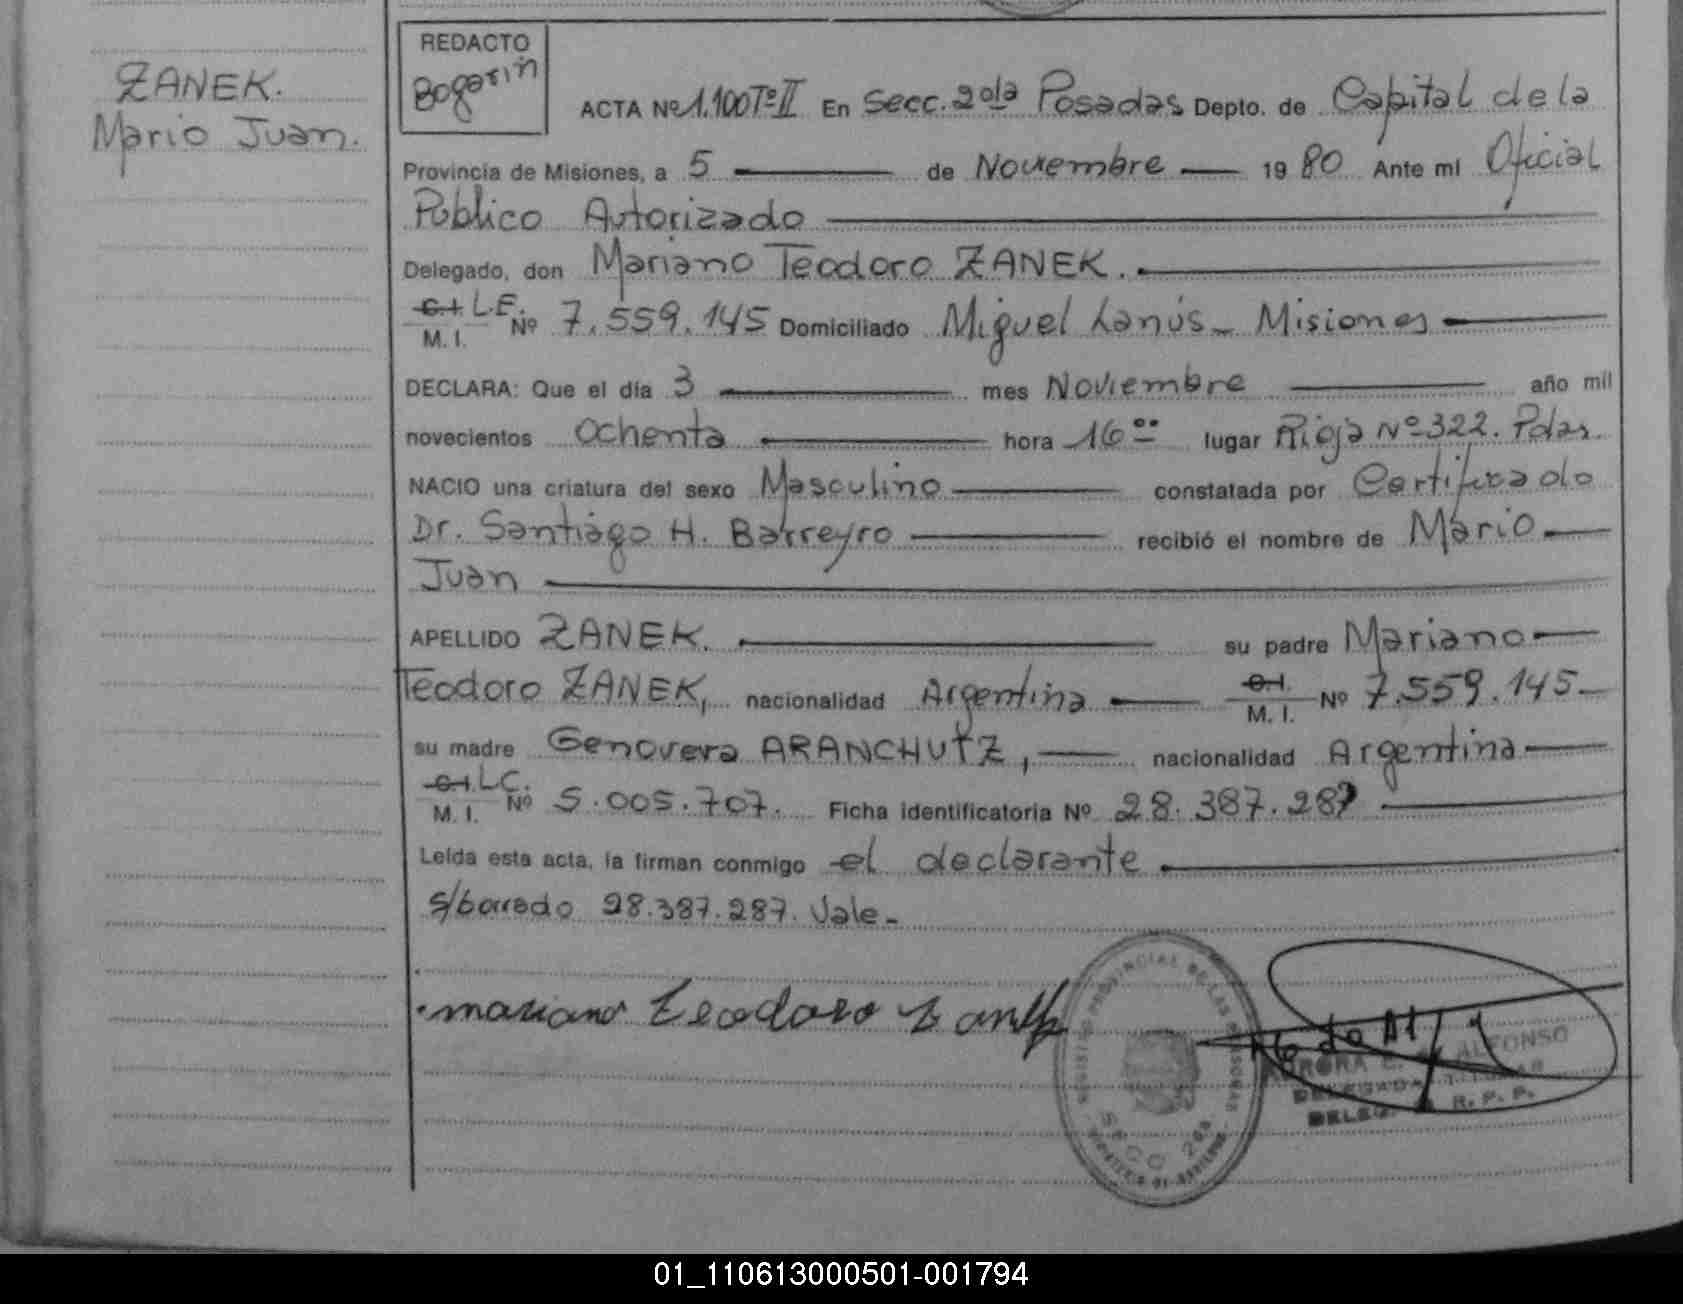 ZANEK.
Mario Juan.
REDACTO
Bogarin
ACTA Nº 1.100 Tº II En Secc. 2da Posadas Depto. de Capital de la
Provincia de Misiones, a 5 de Noviembre 19 80 Ante mi Oficial
Publico Autorizado
Delegado, don Mariano Teodoro ZANEK.
C.I. L.E. Nº 7.559.145 Domiciliado Miguel Lanús - Misiones
M. I.
DECLARA: Que el día 3 mes Noviembre año mil
novecientos ochenta hora 16 00 lugar Rioja Nº 322. Pdas.
NACIO una criatura del sexo Masculino constatada por Certificado
Dr. Santiago H. Barreyro recibió el nombre de Mario
Juan
APELLIDO ZANEK. su padre Mariano
Teodoro ZANEK, nacionalidad Argentina C.I. M. I. Nº 7.559.145
su madre Genoveva ARANCHUTZ, nacionalidad Argentina
C.I. LC. Nº 5.005.707. Ficha identificatoria Nº 28.387.287
M. I.
Leída esta acta, la firman conmigo el declarante
s/borrado 28.387.287. Vale-
mariano teodoro Zanek
REGISTRO PROVINCIAL DE LAS PERSONAS
SECC 2da
ALFONSO
DELEGADA TITULAR
R. P. P.
01_110613000501-001794